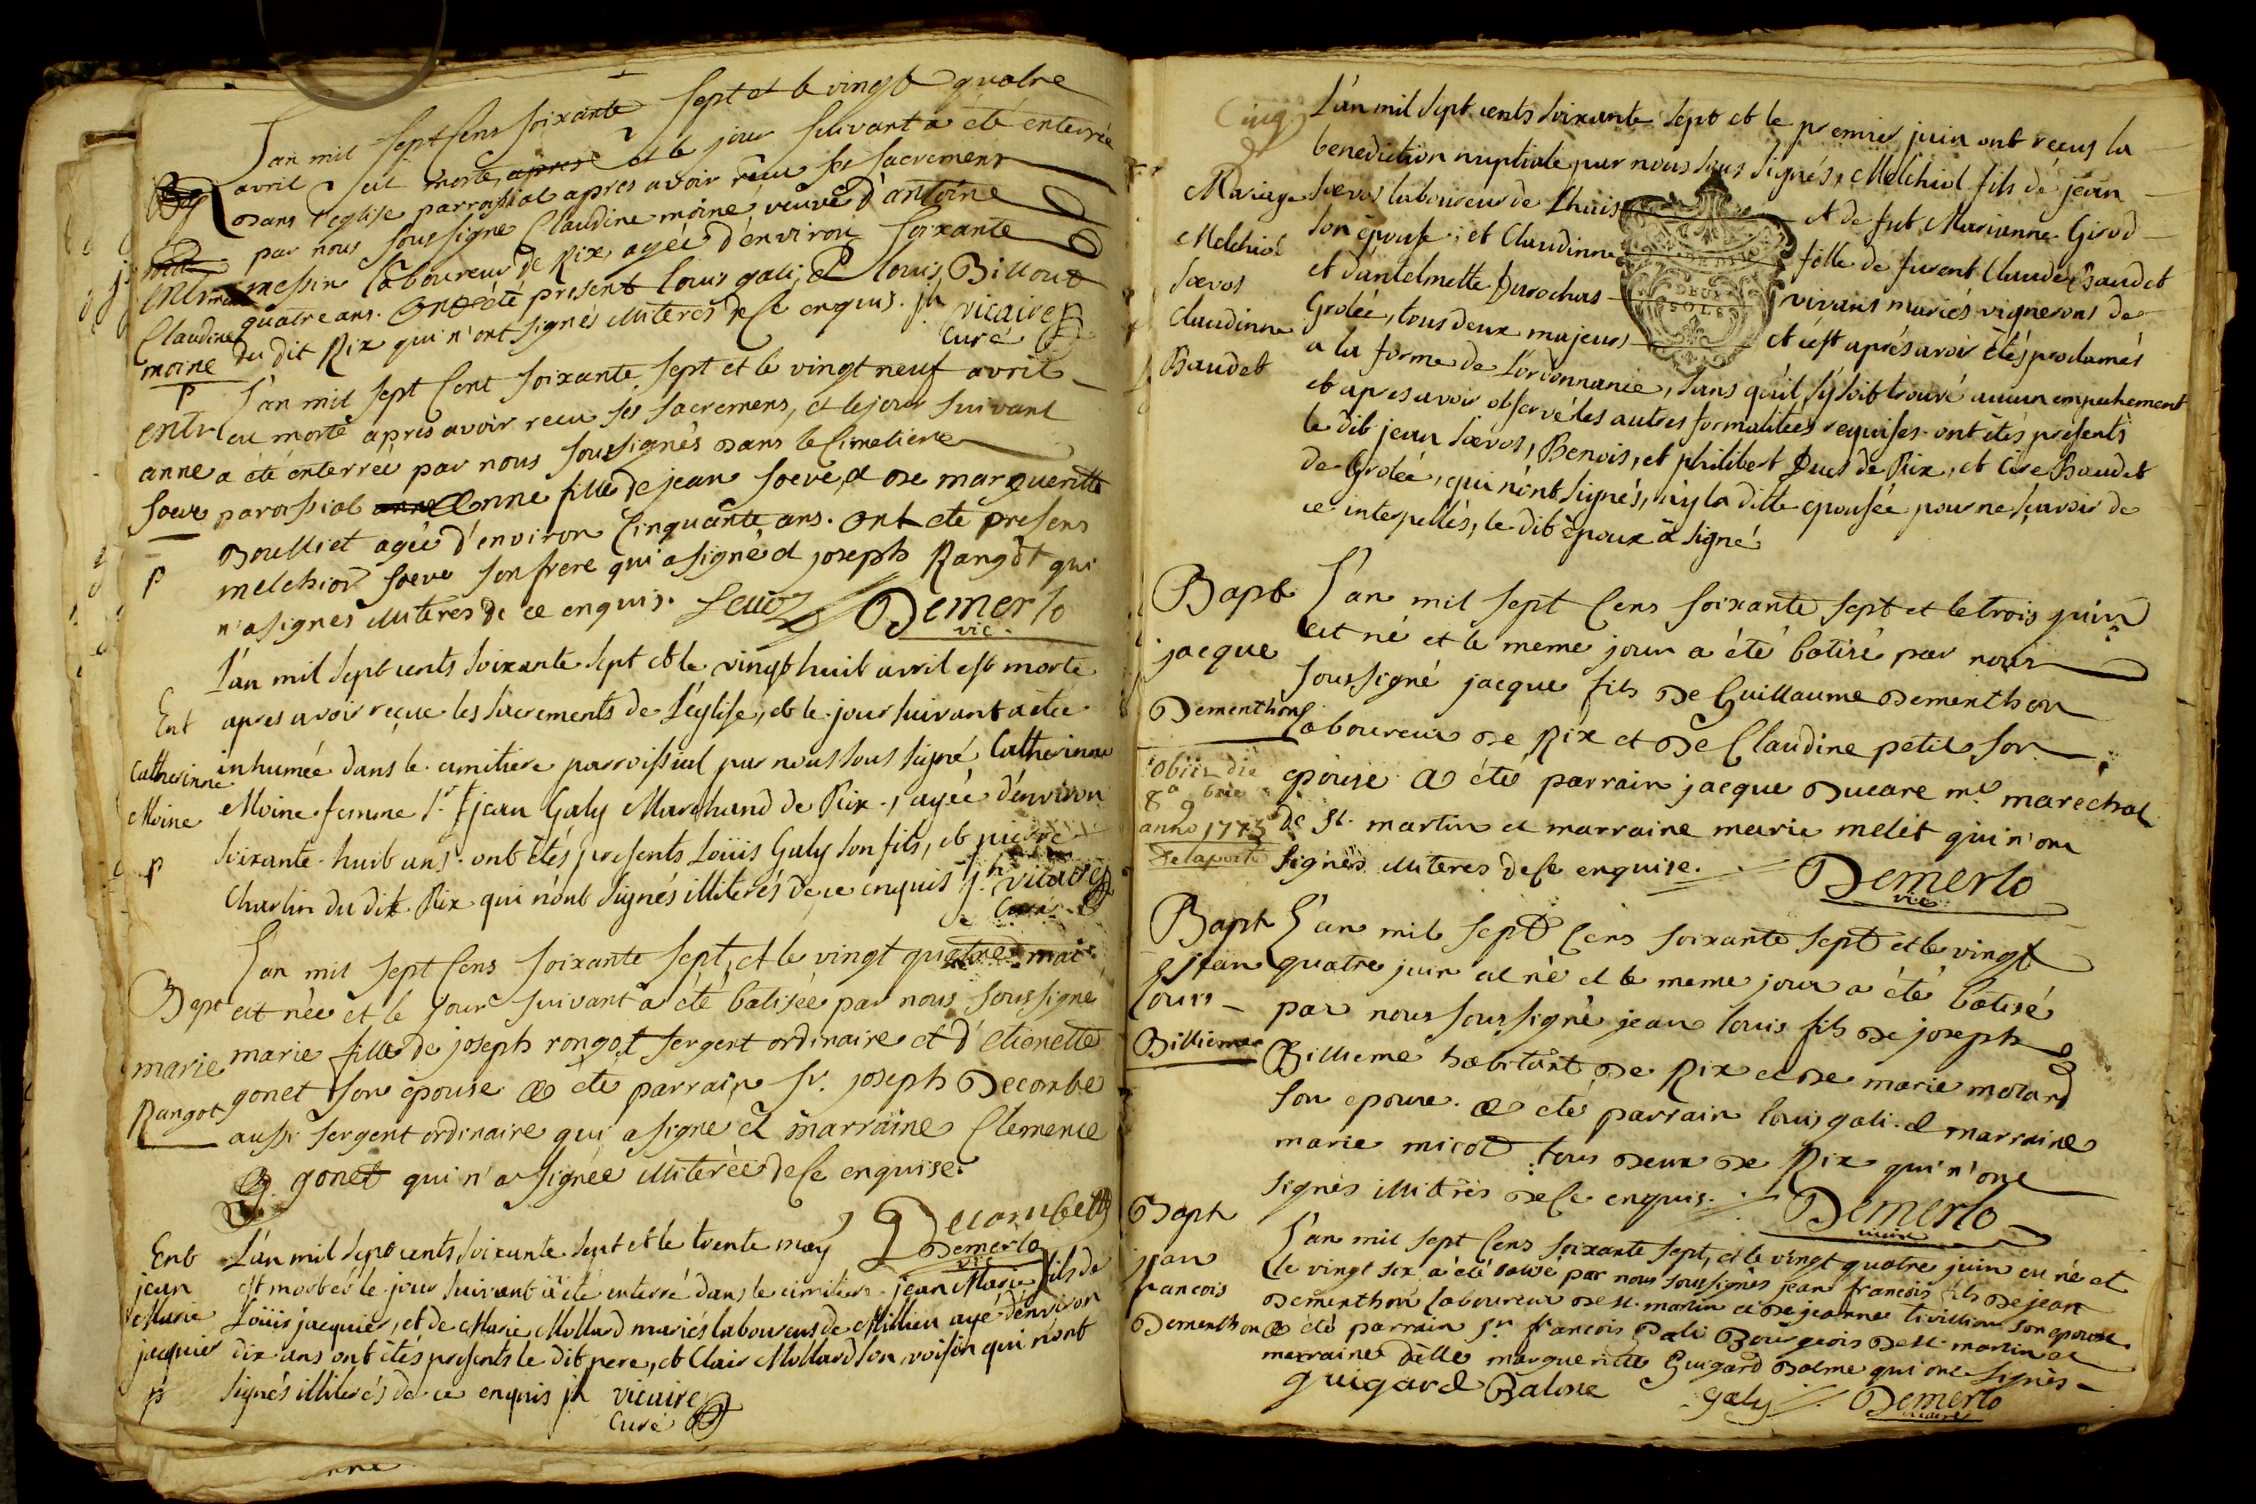 L'an mil sept cens soixante sept et le vingt quatre
avril est morte, apres et le jour suivant a été enterrée
dans l'eglise parrossial apres avoir recu ses sacremens
par nous soussigne Claudine moine veuve d'antoine
messin laboureur de Rix agée d'environ soixante
quatre ans. Ont été present louis gali, et louis Billout
du dit Rix qui n'ont signés illiteres de ce enquis. jh vicaire
curé
entr
Claudine
moine
p
L'an mil sept cent soixante sept et le vingt neuf avril
est morte apres avoir recu ses sacremens, et le jour suivant
a été enterrée par nous soussignés dans le cimetiere
parossial anne Anne fille de jean soeve, et de marguerite
Boulliet agée d'environ cinquante ans. ont été presens
melchior soeve son frere qui a signé et joseph Rangot qui
n'a signés illiteres de ce enquis.
Demerlo
vic
entr
anne
soeve
p
L'an mil sept cents soixante sept et le vingt huit avril est morte
apres avoir reçue les sacrements de L'église, et le jour suivant a étée
inhumée dans le cimitiere parroissial par nous sous signé Catherinne
Moine femme Sr jean Galy Marchand de Rix, agée d'environ
soixante huit ans. ont étés presents Loüis Galy son fils, et pierre
Charlin du dit Rix qui n'ont signés illiterés de ce enquis jh vicaire
Curé
Ent
Catherinne
Moine
p
L'an mil sept cens soixante sept, et le vingt quatre mai
est née et le jour suivant a été batisée par nous soussigné
marie fille de joseph rongot sergent ordinaire et d'etienette
gonet son épouse a été parrain sr. joseph Decombe
aussi sergent ordinaire qui a signé et marraine Clemence
gonet qui n'a signée illiterée de ce enquise.
Decombe
Demerlo
vic
Bapt
marie
Rangot
L'an mil sept cents soixante sept et le trente may
est mort et le jour suivant a été enterré dans le cimitiere jean Marie fils de
Loüis jacquier, et de Marie Mollard mariés laboureurs de Millieu agé d'environ
dix ans ont étés presents le dit pere, et Clair Mollard son voisin qui n'ont
signés illiterés de ce enquis jh vicaire
Curé
Ent
jean
Marie
jacquier
p
Cinq
L'an mil sept cents soixante sept et le premier juin ont reçus la
benediction nuptiale par nous sous signés, Melchiol fils de jean
Sœvos laboureur de Lhuis et de fut Marianne Girod
son épouse; et Claudinne fille de furent Claude Baudet
et d'antelmette Durochas vivans mariés vignerons de
Grolée, tous deux majeurs et c'est aprés avoir étés proclamés
a la forme de L'ordonnance, sans qu'il s'y soit trouvé aucun empechement
et apres avoir observé les autres formalitées requises. ont étés présents
le dit jean Sœvos, Benois, et philibert Ducs de Rix, et Cire Baudet
de Grolée, qui n'ont signés, n'y la ditte epousée pour ne sçavoir de
ce interpellés, le dit époux a signé
Mariage
Melchiol
Sœvos
Claudinne
Baudet
DEUX
SOLS
L'an mil sept cens soixante sept et le trois juin
est né et le meme jour a été batisé par nous
soussigné jacque fils de Guillaume dementhon
laboureur de Rix et de Claudine petit son
epouse. A été parrain jacque ducare me marechal
de St. martin et marraine marie melet qui n'ont
signés illiteres de ce enquise.
Demerlo
vic
Bapt
jacque
Dementhon
obiit die
8a 9bris
anno 1773
Delaporte
L'an mil sept cens soixante sept et le vingt
quatre juin est né et le meme jour a été batisé
par nous soussigné jean louis fils de joseph
Billieme habitant de Rix et de marie molard
son epouse. a été parrain louis gali. et marraine
marie micol tous deux de Rix qui n'ont
signés illitérés de ce enquis.
Demerlo
vicaire
Bapt
jean
Louis
Billieme
L'an mil sept cens soixante sept, et le vingt quatre juin est né et
le vingt six a été batisé par nous soussignés jean francois fils de jean
Dementhon laboureur de st. martin et de jeanne tivillion son epouse.
a été parrain sr. francois Gali Bourgeois de st. martin et
marraine delle marguerite Guigard Balme qui ont signés
guigard Balme galy Demerlo
vicaire
Bapt
jean
francois
Dementhon